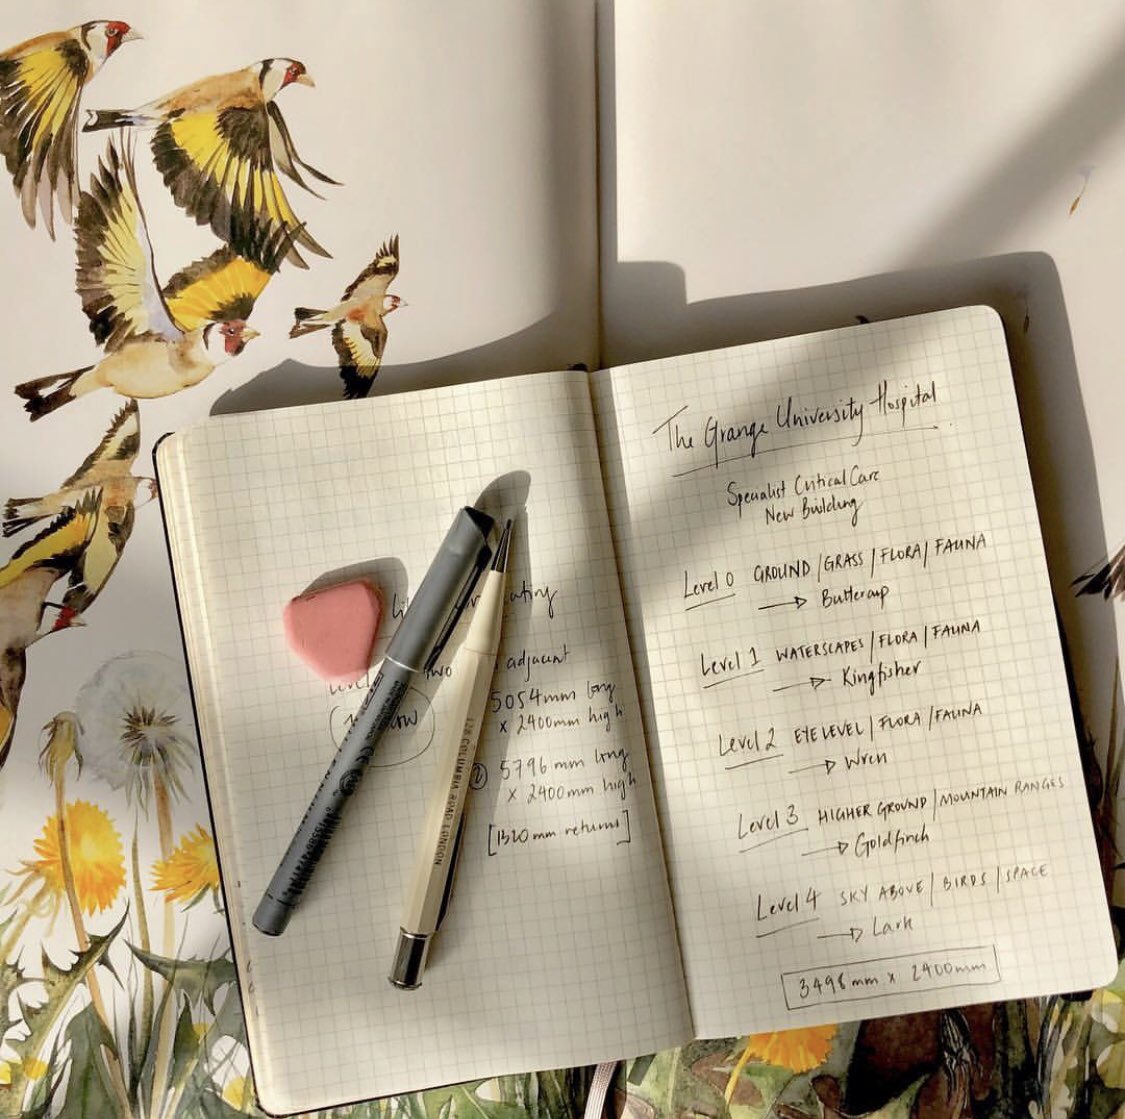 adjacent
5054mm long
x 2400mm high
② 5796mm long
x 2400mm high
[1320mm returns]
128 COLUMBIA ROAD LONDON
The Grange University Hospital
Specialist Critical Care
New Building
Level 0 GROUND/GRASS/FLORA/FAUNA
→ Buttercup
Level 1 WATERSCAPES/FLORA/FAUNA
→ Kingfisher
Level 2 EYE LEVEL/FLORA/FAUNA
→ Wren
Level 3 HIGHER GROUND/MOUNTAIN RANGES
→ Goldfinch
Level 4 SKY ABOVE/BIRDS/SPACE
→ Lark
3498mm x 2400mm